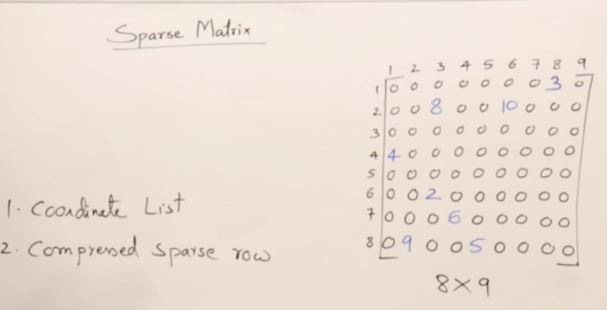 Sparse Matrix
1 2 3 4 5 6 7 8 9
1 0 0 0 0 0 0 0 3 0
2 0 0 8 0 0 10 0 0 0
3 0 0 0 0 0 0 0 0 0
4 4 0 0 0 0 0 0 0 0
5 0 0 0 0 0 0 0 0 0
6 0 0 2 0 0 0 0 0 0
7 0 0 0 6 0 0 0 0 0
8 0 9 0 0 5 0 0 0 0
8×9
1. Coordinate List
2. Compressed sparse row